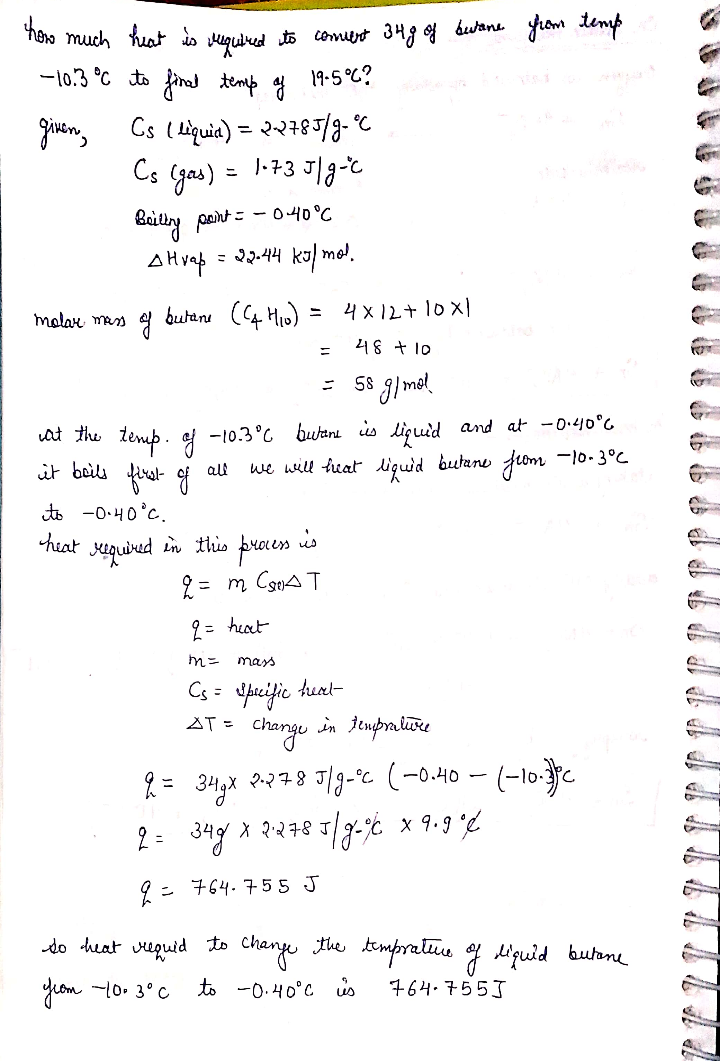 how much heat is required to convert 34g of butane from temp
-10.3 °C to final temp of 19.5°C?
given, Cs (liquid) = 2.278J/g-°C
Cs (gas) = 1.73 J/g-°C
Boiling point = - 0.40°C
ΔHvap = 22.44 kJ/mol.
molar mass of butane (C4H10) = 4 x 12 + 10 x1
= 48 + 10
= 58 g/mol
at the temp. of -10.3°C butane is liquid and at -0.40°C
it boils first of all we will heat liquid butane from -10.3°C
to -0.40°C.
heat required in this process is
q = m Cs(l)ΔT
q = heat
m= mass
Cs = specific heat
ΔT = change in temprature
q = 34gx 2.278 J/g-°C (-0.40 - (-10.3)°C
q = 34g x 2.278 J/g-°C x 9.9°C
q = 764.755 J
so heat requid to change the temprature of liquid butane
from -10.3°C to -0.40°C is 764.755J